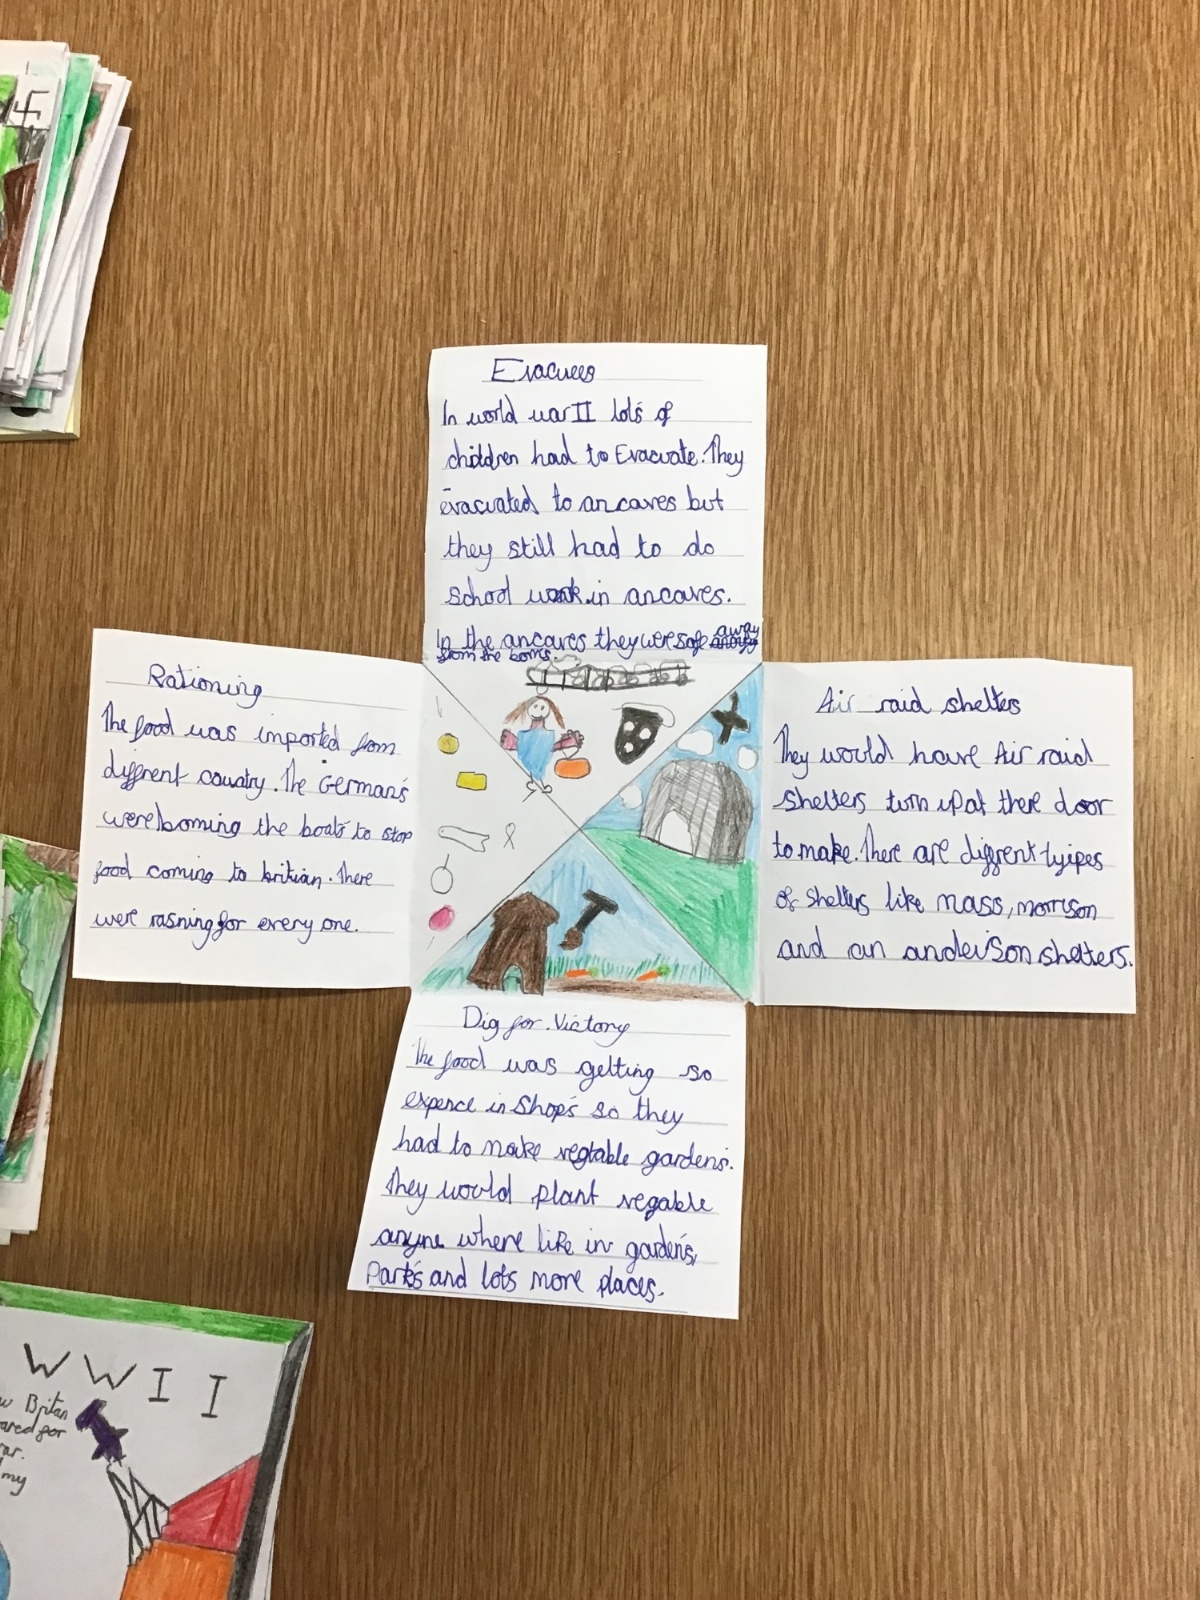 Evacuees
In world war II lots of
children had to Evacuate. They
evacuated to ancaves but
they still had to do
school work in ancaves.
In the ancaves they were safe away
from the boms.
Rationing
The food was imported from
diffrent country. The German's
were boming the boats to stop
food coming to britian. There
were rasning for every one.
Air raid shelters
They would have Air raid
shelters turn up at there door
to make. There are diffrent tyipes
of shelters like mass, morrison
and an anderson shelters.
Dig for Victory
The food was getting so
expence in shop's so they
had to make vegtable gardens.
They would plant vegable
where like in garden's,
Park's and lots more places.
WWII
Britan
for
my